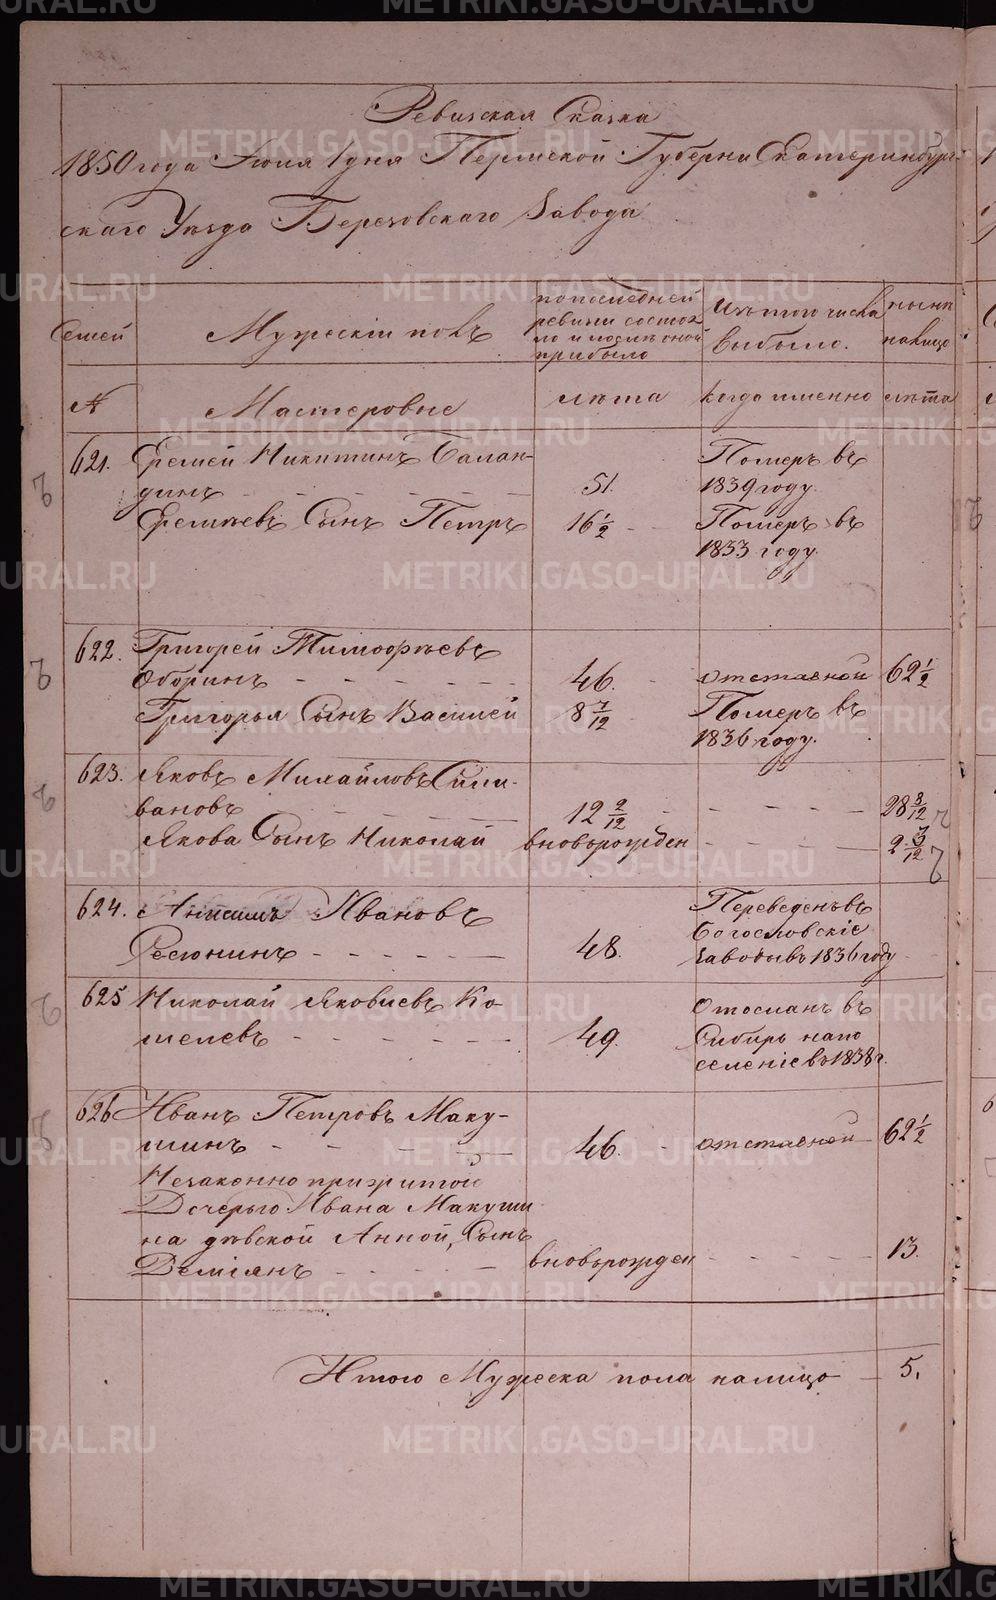 Ревизская Сказка
1850 года Июля 1 дня Пермской Губерни Екатеринбург-
скаго Уезда Березовскаго Завода
Семей
Мужескiй полъ
по последней
ревизи состоя
ло и после оной
прибыло
Изъ того числа
выбыло.
ныне
на лицо
№
Мастеровые
лѣта
когда именно
лѣта
621. Еремей Никитинъ Балан-
динъ 51. Померъ въ
1839 году.
Еремѣевъ Сынъ Петръ 16 1/2 Померъ въ
1833 году.
622. Григорей Тимофѣевъ
Оборинъ 46. отставной 62 1/2
Григорья Сынъ Василей 8 7/12 Померъ въ
1836 году.
623. Яковъ Михайловъ Сили-
вановъ 12 2/12 28 8/12
Якова Сынъ Николай вновьрожден 2 3/12
624. Анисимъ Ивановъ
48. Переведенъ въ
Богословскiе
заводы въ 1836 году
625 Николай Яковлевъ Ко
шелевъ 49. Отосланъ въ
Сибирь на по
селенiе в 1838 г.
626 Иванъ Петровъ Маку-
шинъ 46. отставной 62 1/2
Незаконно прижитой
Дочерью Ивана Макуши
на дѣвской Анной, Сынъ
Демiянъ вновьрожден 13.
Итого Мужеска пола налицо 5.
METRIKI.GASO-URAL.RU